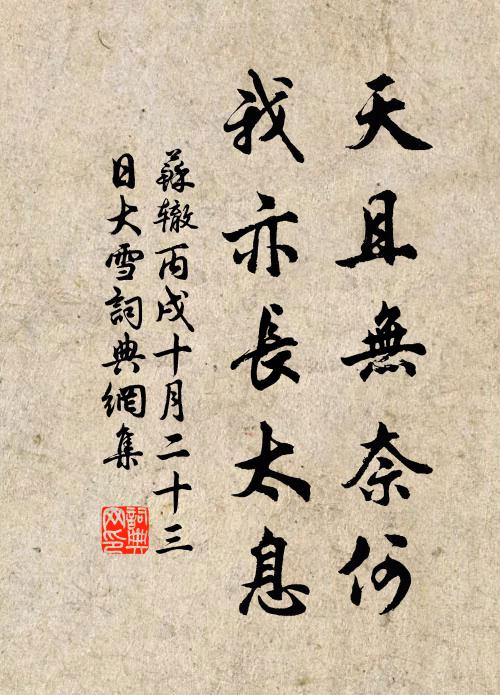 天且無奈何
我亦長太息
蘇轍丙戌十月二十三
日大雪詞典網集
詞典
网印